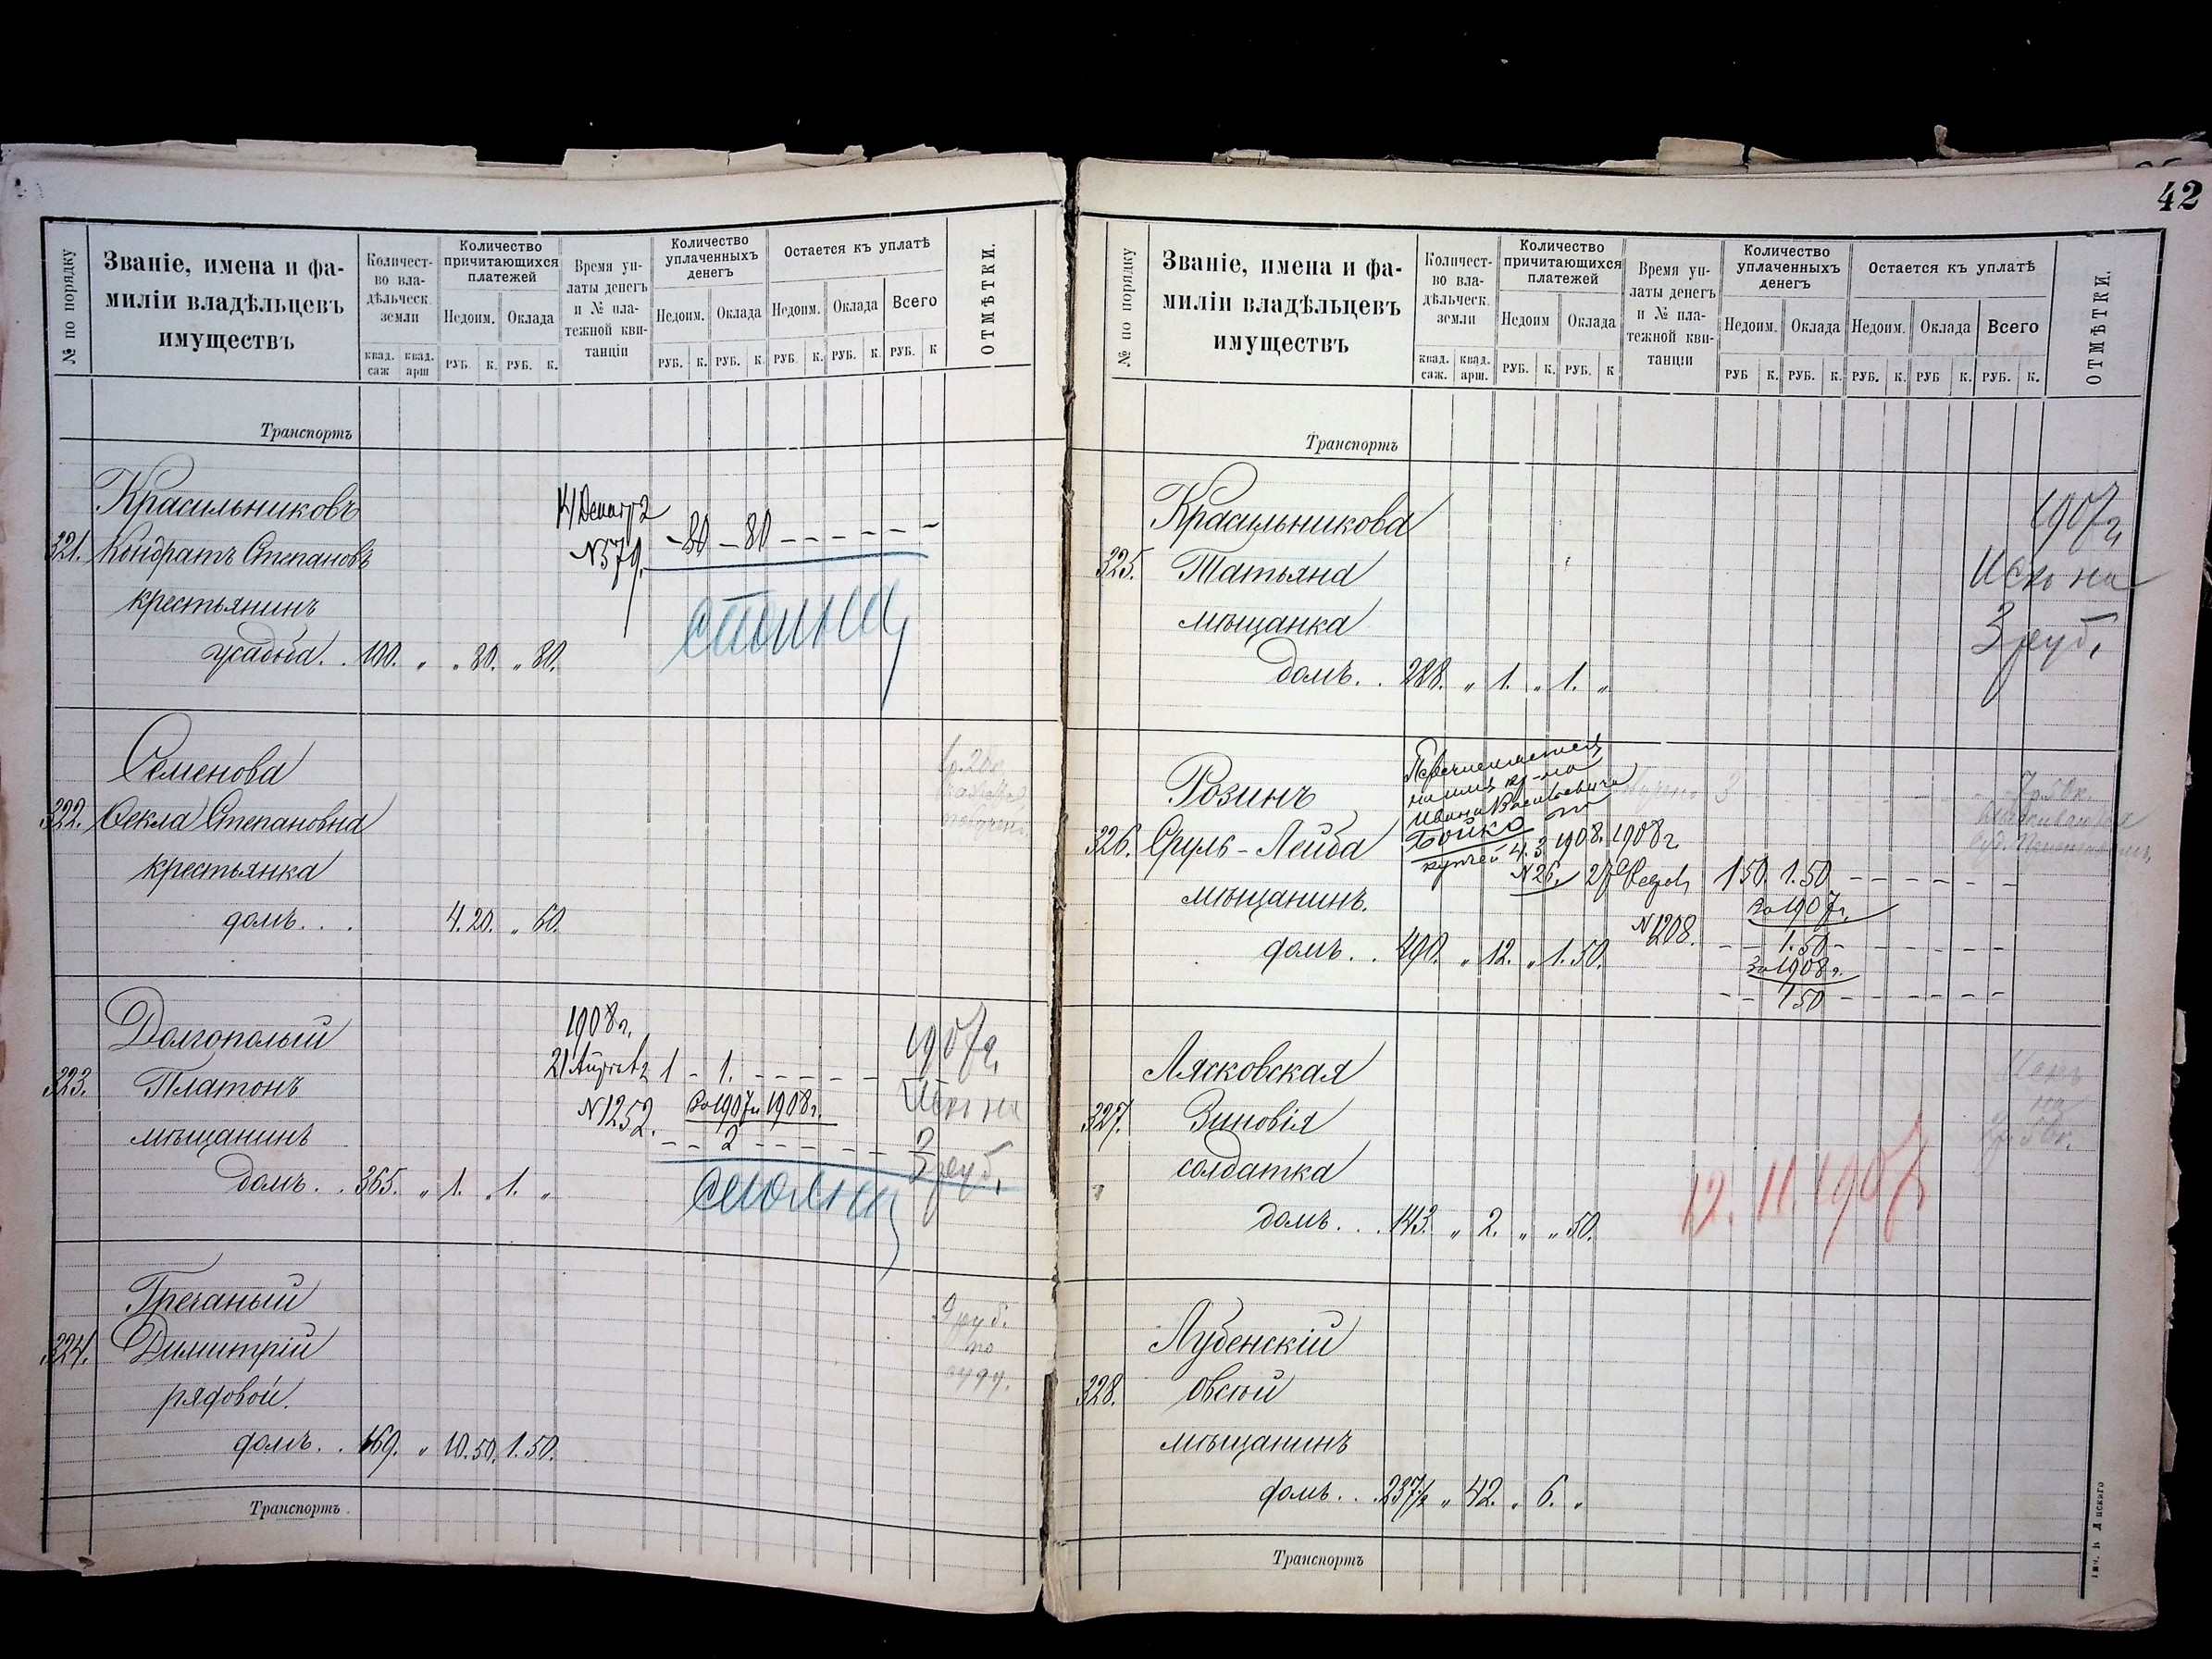 42
№ по порядку
Званіе, имена и фа-
миліи владѣльцевъ
имуществъ
Количест-
во вла-
дѣльческ.
земли
квад. саж
квад. арш
Количество
причитающихся
платежей
Недоим. Оклада
РУБ. К. РУБ. К.
Время уп-
латы денегъ
и № пла-
тежной кви-
танціи
Количество
уплаченныхъ
денегъ
Недоим. Оклада
РУБ. К. РУБ. К.
Остается къ уплатѣ
Недоим. Оклада Всего
РУБ. К. РУБ. К. РУБ. К
ОТМѢТКИ.
Транспортъ
Красильниковъ
321. Кондратъ Степановъ
крестьянинъ
усадьба. . 100. „ „ 80. „ 80.
№579.
- 80 - 80 - - - - - -
Семенова
322. Фекла Степановна
крестьянка
домъ. . . 4. 20. „ 60.
Долгополый
323. Платонъ
мѣщанинъ
домъ. . 365. „ 1. „ 1. „
1908г.
21 Августа 1 - 1. - - - - - -
№1252. За 1907 и 1908г.
- - 2 - - - - - -
1907г.
Искъ на
3 руб.
Гречаный
324. Димитрій
рядовой.
домъ. . 169. „ 10. 50. 1. 50.
9 руб.
по
суду.
Транспортъ
№ по порядку
Званіе, имена и фа-
миліи владѣльцевъ
имуществъ
Количест-
во вла-
дѣльческ.
земли
квад. саж.
квад. арш.
Количество
причитающихся
платежей
Недоим Оклада
РУБ. К. РУБ. К
Время уп-
латы денегъ
и № пла-
тежной кви-
танціи
Количество
уплаченныхъ
денегъ
Недоим. Оклада
РУБ К. РУБ. К.
Остается къ уплатѣ
Недоим. Оклада Всего
РУБ. К. РУБ К. РУБ. К.
ОТМѢТКИ.
Транспортъ
Красильникова
325. Татьяна
мѣщанка
домъ. . 288. „ 1. „ 1. „
1907г.
Искъ на
3 руб.
Розинъ
326. Сруль-Лейба
мѣщанинъ.
домъ. . 490. „ 12. „ 1. 50.
Перечисляется
на имя кр-на
Ивана Васильевича
Бойко по
купчей 4. 3. 1908.
№26.
1908г.
№1208.
1 50. 1. 50 - - - - - -
За 1907г.
- - 1. 50 - - - - - -
За 1908г.
- - 1 50 - - - - - -
7р. 50к.
Лясковская
327. Зиновія
солдатка
домъ. . . 143. „ 2. „ „ 50.
Искъ
на
12. 11. 1907
Лубенскій
328. Овсѣй
мѣщанинъ
домъ. . . 237½ „ 42. „ 6. „
Транспортъ